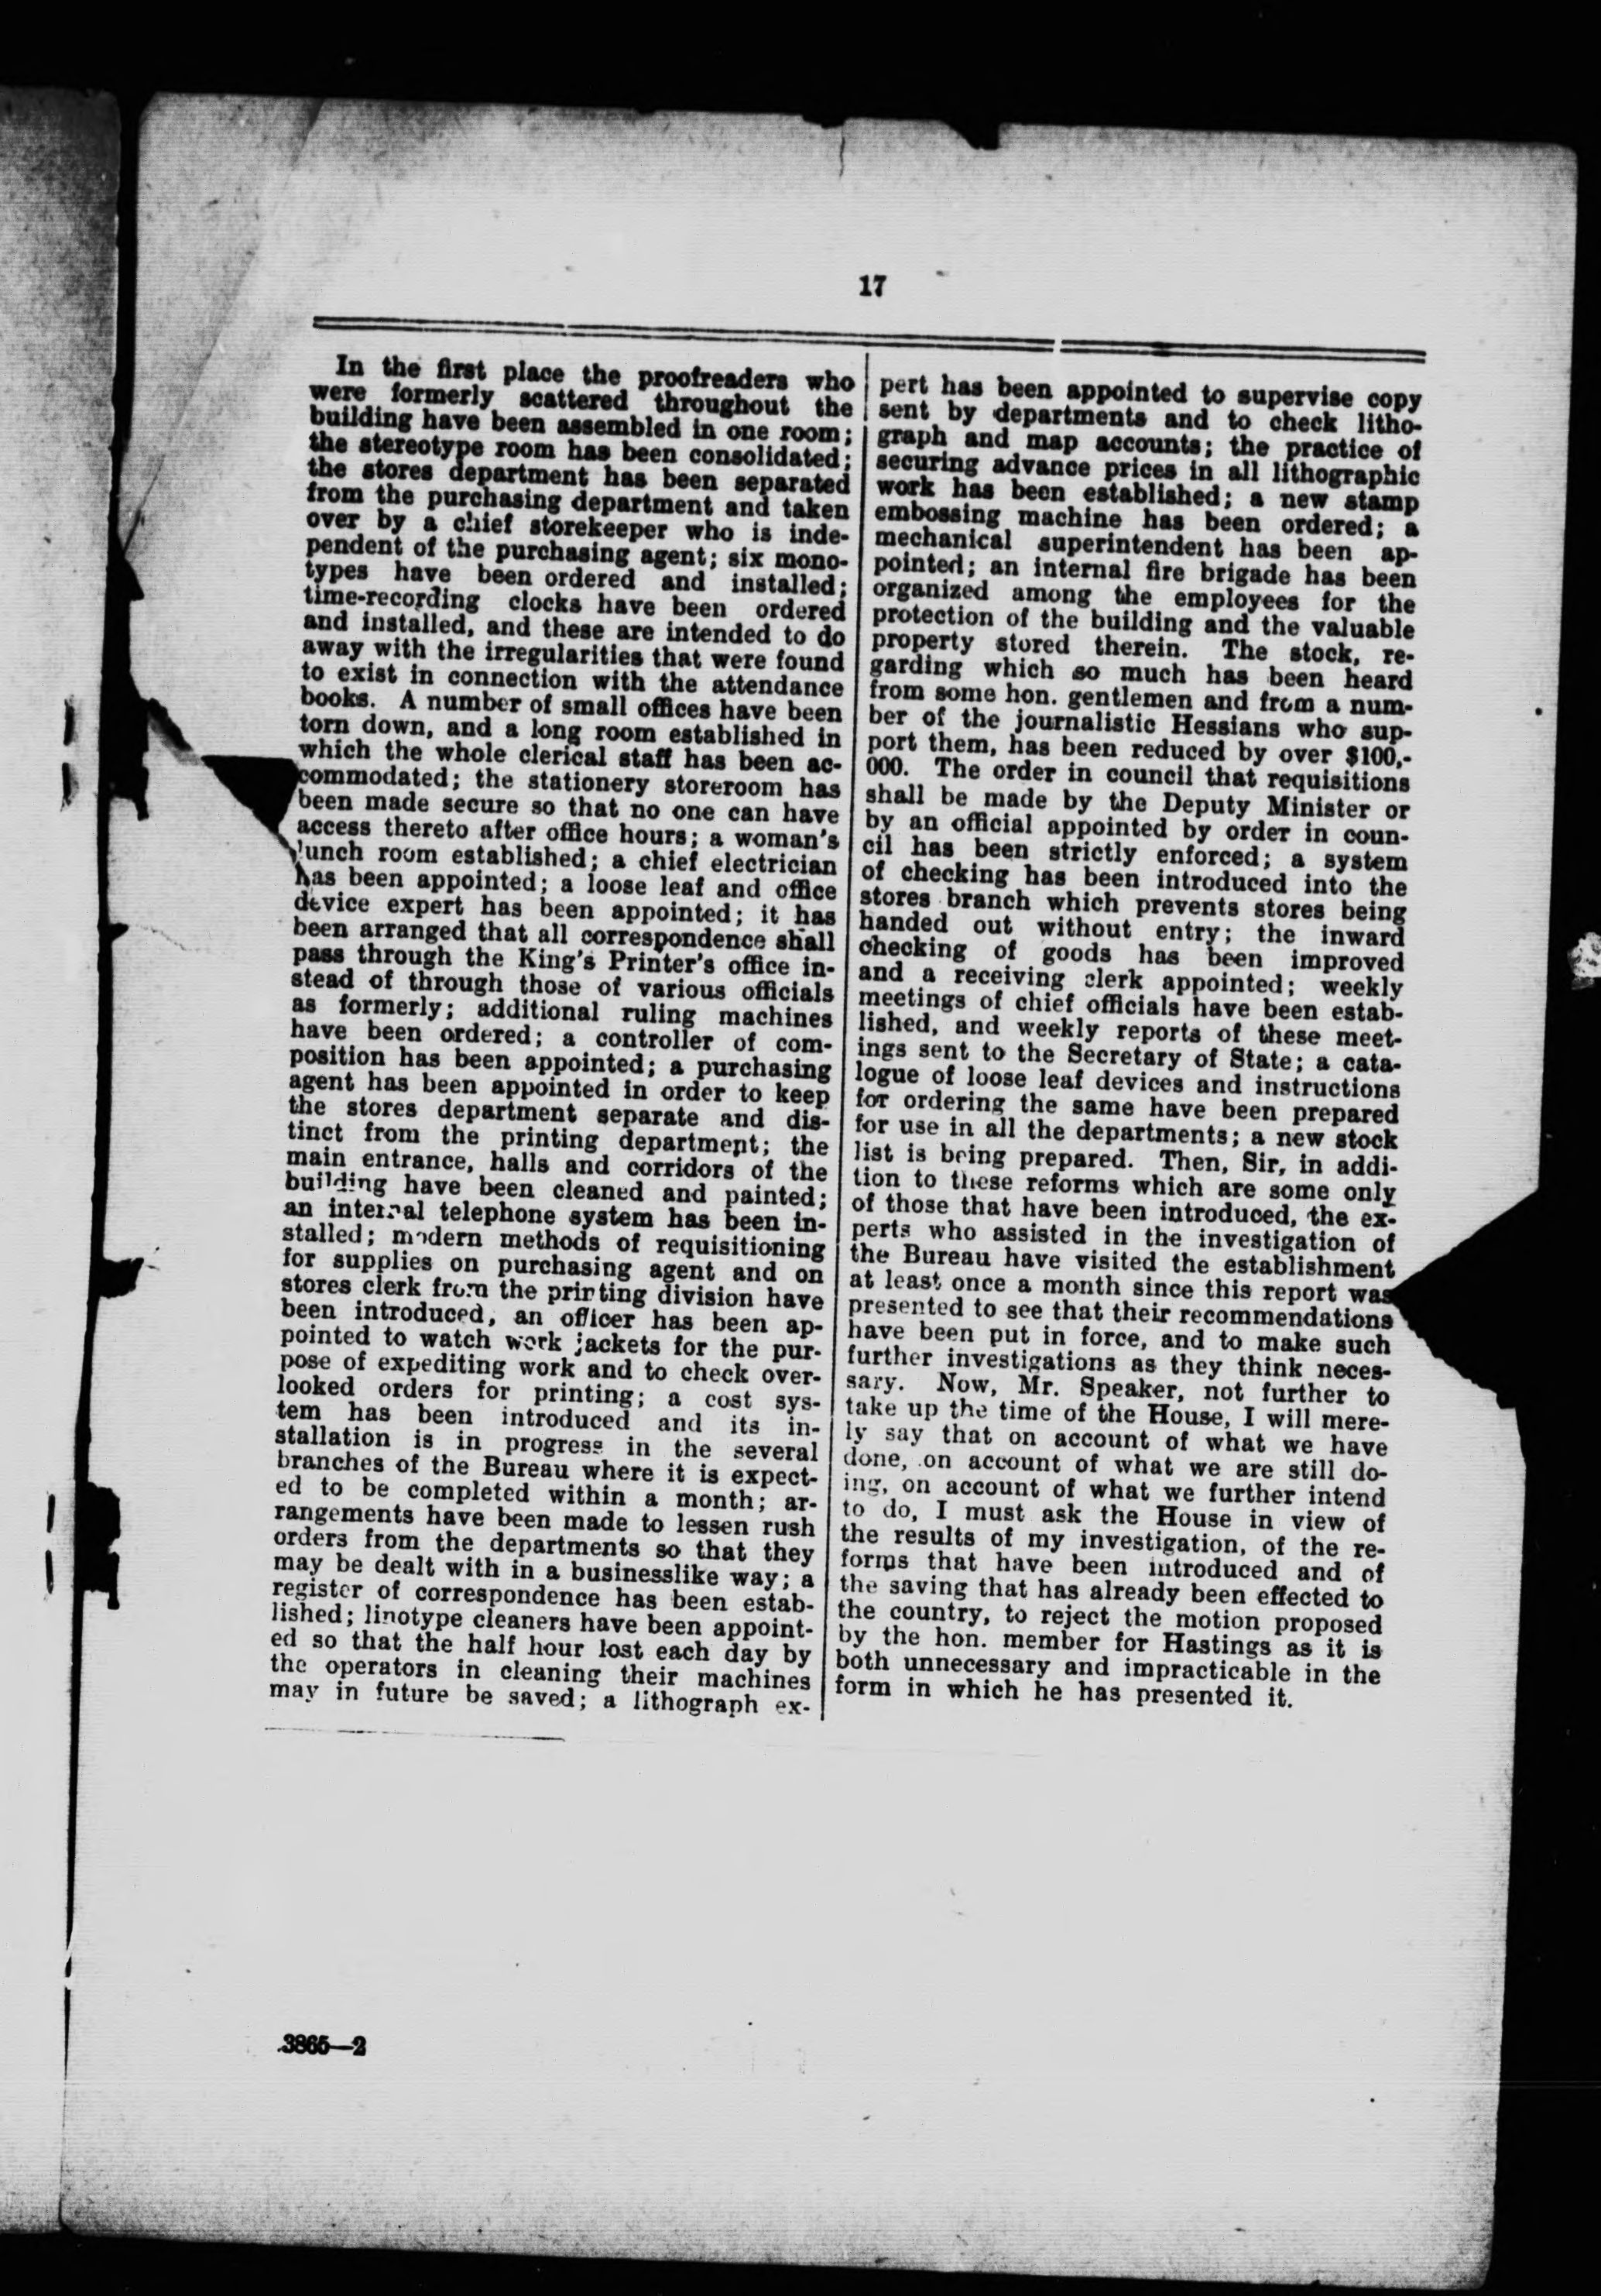 17
In the first place the proofreaders who
were formerly scattered throughout the
building have been assembled in one room;
the stereotype room has been consolidated;
the stores department has been separated
from the purchasing department and taken
over by a chief storekeeper who is inde-
pendent of the purchasing agent; six mono-
types have been ordered and installed;
time-recording clocks have been ordered
and installed, and these are intended to do
away with the irregularities that were found
to exist in connection with the attendance
books. A number of small offices have been
torn down, and a long room established in
which the whole clerical staff has been ac-
commodated; the stationery storeroom has
been made secure so that no one can have
access thereto after office hours; a woman's
lunch room established; a chief electrician
has been appointed; a loose leaf and office
device expert has been appointed; it has
been arranged that all correspondence shall
pass through the King's Printer's office in-
stead of through those of various officials
as formerly; additional ruling machines
have been ordered; a controller of com-
position has been appointed; a purchasing
agent has been appointed in order to keep
the stores department separate and dis-
tinct from the printing department; the
main entrance, halls and corridors of the
building have been cleaned and painted;
an internal telephone system has been in-
stalled; modern methods of requisitioning
for supplies on purchasing agent and on
stores clerk from the printing division have
been introduced, an officer has been ap-
pointed to watch work jackets for the pur-
pose of expediting work and to check over-
looked orders for printing; a cost sys-
tem has been introduced and its in-
stallation is in progress in the several
branches of the Bureau where it is expect-
ed to be completed within a month; ar-
rangements have been made to lessen rush
orders from the departments so that they
may be dealt with in a businesslike way; a
register of correspondence has been estab-
lished; linotype cleaners have been appoint-
ed so that the half hour lost each day by
the operators in cleaning their machines
may in future be saved; a lithograph ex-
pert has been appointed to supervise copy
sent by departments and to check litho-
graph and map accounts; the practice of
securing advance prices in all lithographic
work has been established; a new stamp
embossing machine has been ordered; a
mechanical superintendent has been ap-
pointed; an internal fire brigade has been
organized among the employees for the
protection of the building and the valuable
property stored therein. The stock, re-
garding which so much has been heard
from some hon. gentlemen and from a num-
ber of the journalistic Hessians who sup-
port them, has been reduced by over $100,-
000. The order in council that requisitions
shall be made by the Deputy Minister or
by an official appointed by order in coun-
cil has been strictly enforced; a system
of checking has been introduced into the
stores branch which prevents stores being
handed out without entry; the inward
checking of goods has been improved
and a receiving clerk appointed; weekly
meetings of chief officials have been estab-
lished, and weekly reports of these meet-
ings sent to the Secretary of State; a cata-
logue of loose leaf devices and instructions
for ordering the same have been prepared
for use in all the departments; a new stock
list is being prepared. Then, Sir, in addi-
tion to these reforms which are some only
of those that have been introduced, the ex-
perts who assisted in the investigation of
the Bureau have visited the establishment
at least once a month since this report was
presented to see that their recommendations
have been put in force, and to make such
further investigations as they think neces-
sary. Now, Mr. Speaker, not further to
take up the time of the House, I will mere-
ly say that on account of what we have
done, on account of what we are still do-
ing, on account of what we further intend
to do, I must ask the House in view of
the results of my investigation, of the re-
forms that have been introduced and of
the saving that has already been effected to
the country, to reject the motion proposed
by the hon. member for Hastings as it is
both unnecessary and impracticable in the
form in which he has presented it.
3865—2